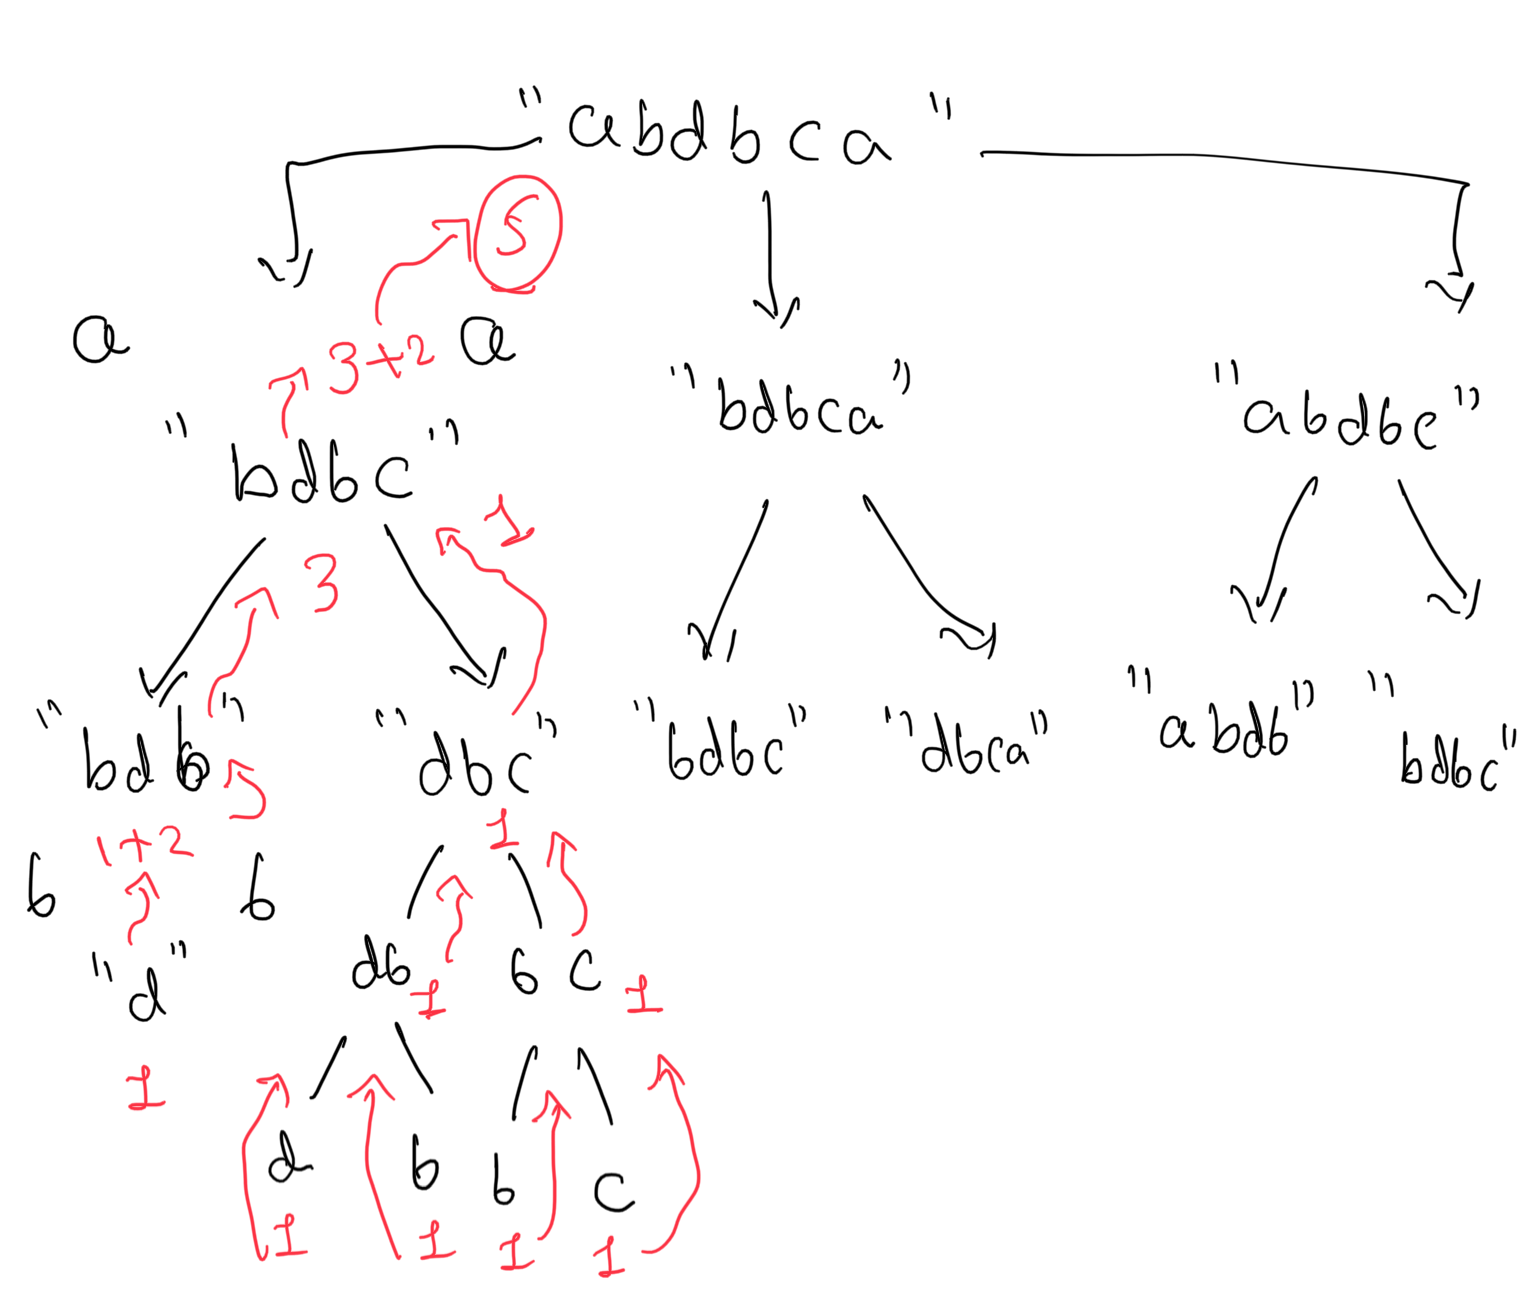 "abdbca"
5
a 3+2 a
"bdbca"
"abdbc"
"bdbc"
1
3
"bdb" "dbc" "bdbc" "dbca" "abdb" "bdbc"
1+2 1
b b
db 1 b c 1
"d"
1
d b b c
1 1 1 1